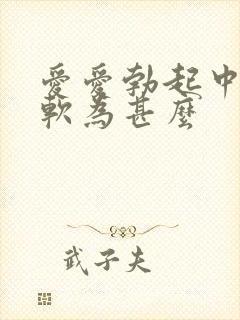 愛愛勃起中
軟為甚麼
武子夫